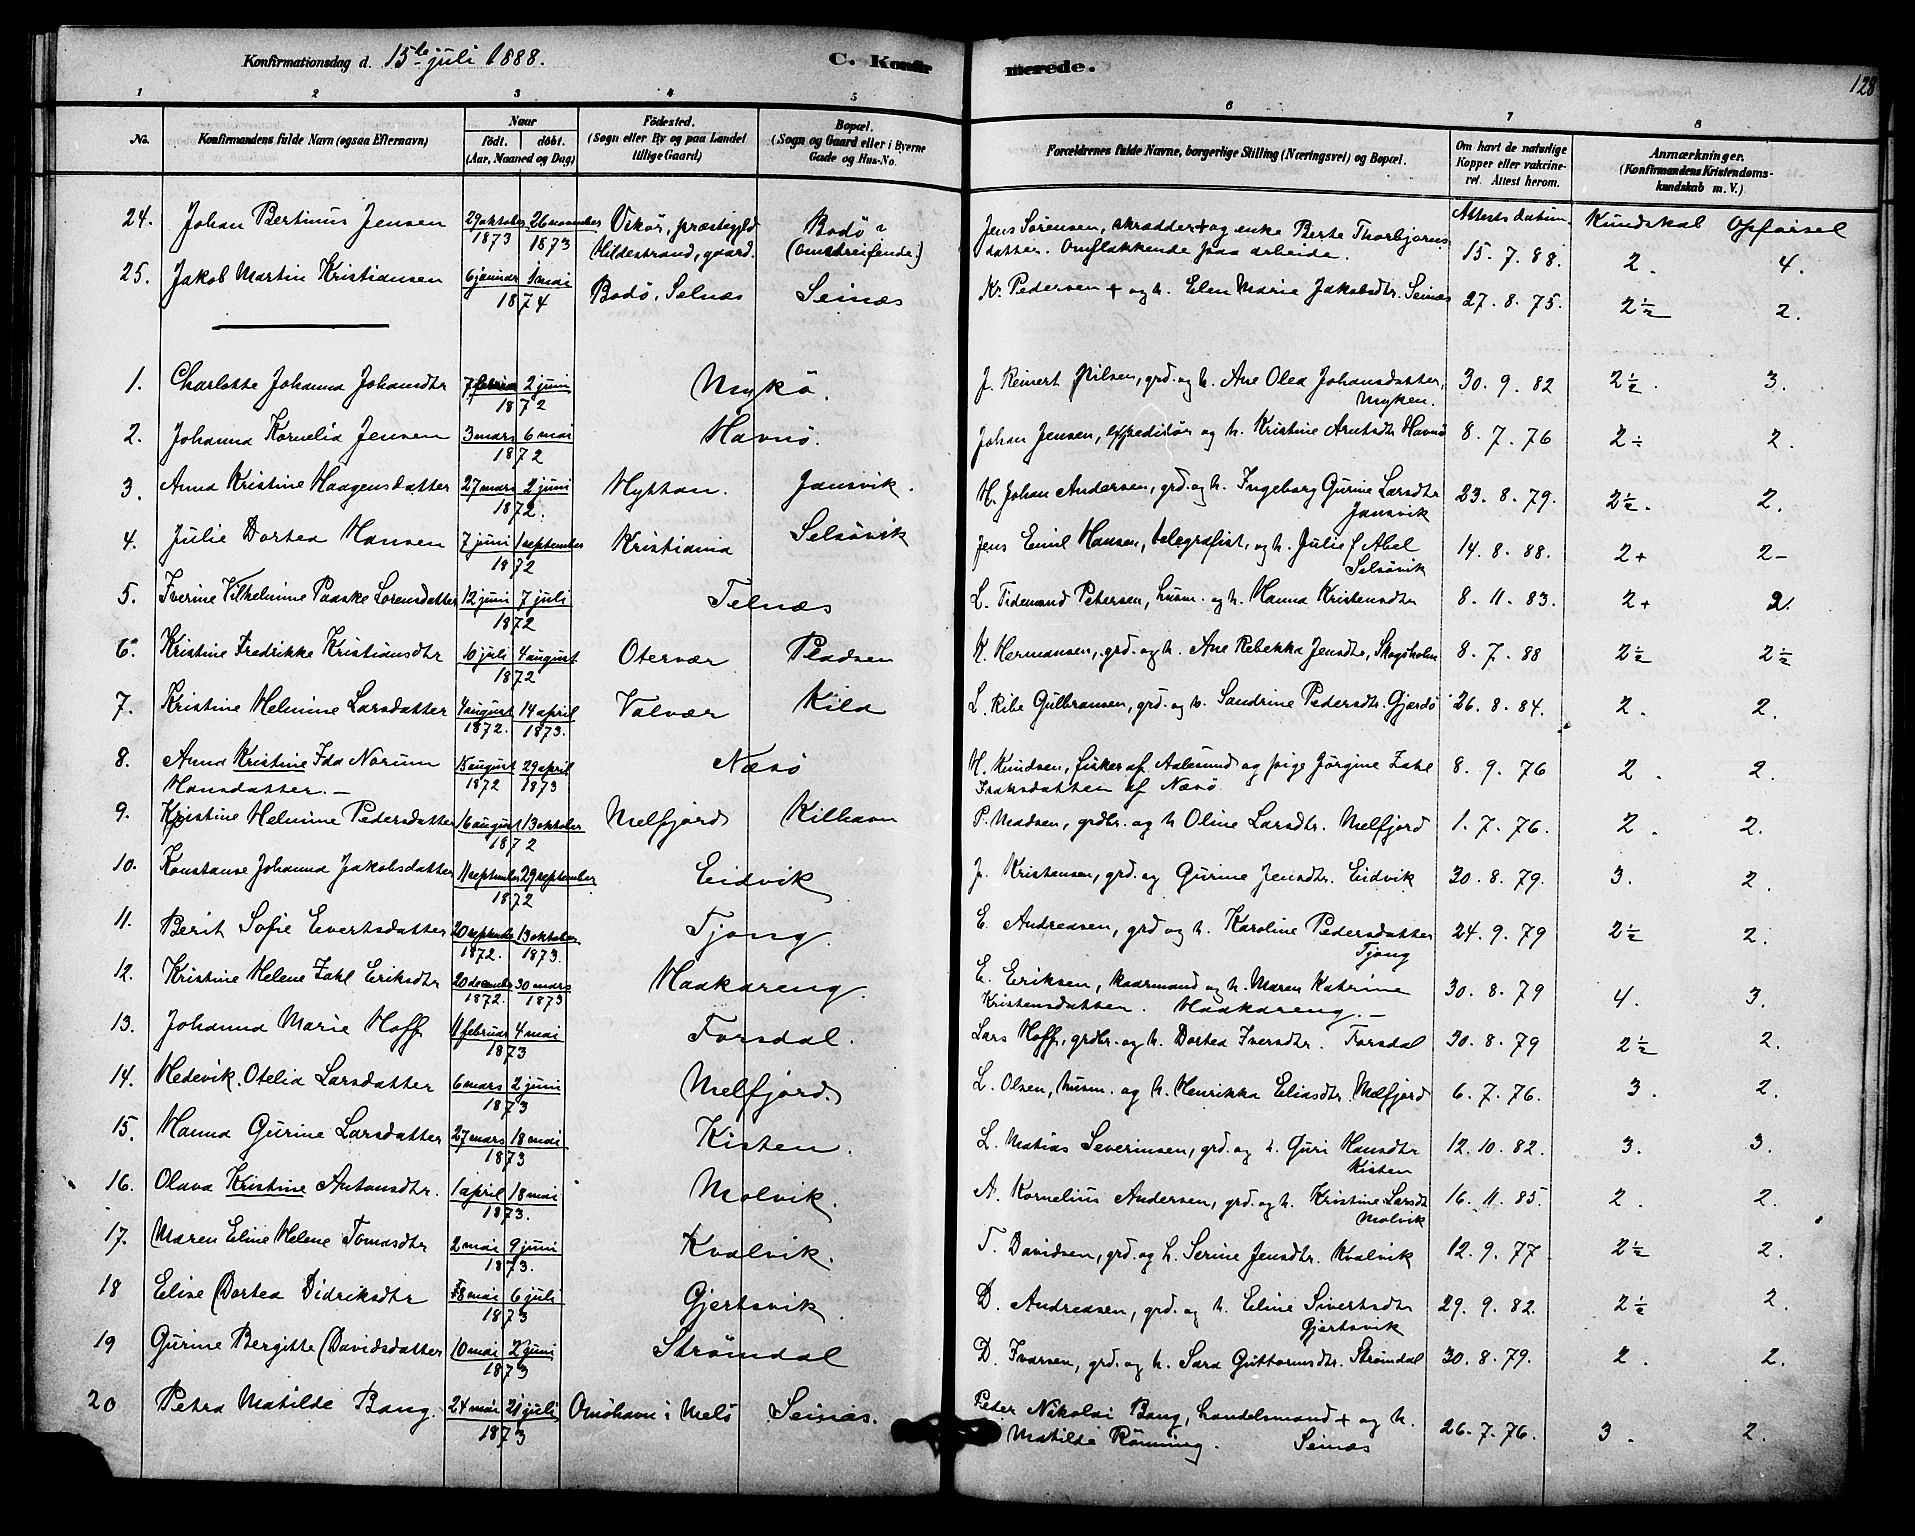 Konfirmationsdag d. 15de juli 1888. C. Konfirmerede. 128
1 2 3 4 5 6 7 8
No. Konfirmandens fulde Navn (ogsaa Efternavn) Naar født. døbt. (Aar, Maaned og Dag) Fødested. (Sogn eller By og paa Landet tillige Gaard) Bopæl. (Sogn og Gaard eller i Byerne Gade og Hus-No. Forældrenes fulde Navne, borgerlige Stilling (Næringsvei) og Bopæl. Om havt de naturlige Kopper eller vakcineret. Attest herom. Anmærkninger. (Konfirmandens Kristendomskundskab m. V.)
Attests datum. Kundskab Opførsel
24. Johan Bertinus Jensen 29 oktober 1873 26 november 1873 Vikør, præstegjld Hildestrand, gaard. Bodø (omstreifende) Jens Sørensen, skrædder + og enke Berte Thorbjørnsdatter. Omflakkende paa arbeide. 15. 7. 88. 2. 4.
25. Jakob Martin Kristiansen 6 januar 1 mai 1874 Bodø, Selnæs Seinæs Kr. Pedersen + og h. Elen Marie Jakobsdtr. Seinæs 27. 8. 75. 2½ 2.
1. Charlotte Johanna Johansdtr 7 februar 2 juni 1872 Mykø. J. Reinert Nilsen, grd. og h. Ane Olea Johansdatter, Myken. 30. 9. 82 2½. 3.
2. Johanna Kornelia Jensen 3 mars 6 mai 1872 Havnø. Johan Jensen, expeditør og h. Kristine Arntsdtr Havnø 8. 7. 76 2÷ 2.
3. Anna Kristine Haagensdatter 27 mars 2 juni 1872. Hyttan. Jansvik. H. Johan Andersen, grd. og h. Ingeborg Gurine Larsdtr Jansvik 23. 8. 79. 2½. 2.
4. Julie Dortea Hansen 7 juni 1 september 1872 Kristiania Selsøvik Jens Emil Hansen, telegrafist, og h. Julie f Abel Selsøvik 14. 8. 88. 2+ 2-
5. Iverine Vilhelmine Paaske Lorensdatter 12 juni 7 juli 1872 Telnæs L. Tidemand Petersen, husm. og h. Hanna Kristensdtr 8. 11. 83. 2+ 2.
6. Kristine Fredrikke Kristiansdtr 6 juli 4 august 1872 Otervær Pladsen K. Hermansen, grd. og h. Ane Rebekka Jensdtr, Skogsholm 8. 7. 88 2½ 2½
7. Kristine Helmine Larsdatter 4 august 1872. 14 april 1873. Valvær Kila L. Ribe Gulbransen, grd. og h. Sandrine Pedersdtr. Gjærdø 26. 8. 84. 2. 2.
8. Anna Kristine Ida Norum Hansdatter. 15 august 1872 29 april 1873 Næsø H. Knudsen, fisker af Aalesund og pige Jørgine Zahl Isaksdatter af Næsø. 8. 9. 76 2. 2.
9. Kristine Helmine Pedersdatter 16 august 13 oktober 1872 Melfjord Kilhavn P. Madsen, grdbr. og h Oline Larsdtr. Melfjord 1. 7. 76. 2. 2.
10. Konstanse Johanna Jakobsdatter 11 september 29 september 1872 Eidvik J. Kristensen, grd. og Gurine Jensdtr. Eidvik 30. 8. 79. 3. 2.
11. Berit Sofie Evertsdatter 20 september 1872. 13 oktober 1873. Tjong. E. Andreasen, grd og h. Karoline Pedersdatter Tjong 24. 9. 79 2½ 2.
12. Kristine Helene Zahl Eriksdtr 20 december 1872. 30 mars 1873 Haakareng. E. Eriksen, kaarmand og h. Maren Katrine Kristensdatter. Haakareng. 30. 8. 79 4. 3.
13. Johanna Marie Hoff 11 februar 4 mai 1873 Forsdal. Lars Hoff, grdbr. og h. Dortea Iversdtr. Forsdal 30. 8. 79 2½ 2.
14. Hedevik Otelia Larsdatter 6 mars 2 juni 1873 Melfjord. L. Olsen, husm. og h. Henrikka Eliasdtr. Melfjord 6. 7. 76. 3. 2.
15. Hanna Gurine Larsdatter 27 mars 18 mai 1873 Kisten. L. Matias Severinsen, grd. og h. Guri Hansdtr Kisten 12. 10. 82. 3. 3.
16. Olava Kristine Antonsdtr. 1 april 18 mai 1873. Molvik. A. Kornelius Andersen, grd. og h. Kristine Larsdt Molvik 16. 11. 85 2. 2.
17. Maren Eline Helene Tomasdtr 2 mai 9 juni 1873. Kvalvik. T. Davidsen, grd. og h. Serine Jensdtr. Kvalvik 12. 9. 77 2½ 2.
18 Elise Dortea Didriksdtr 8 mai 6 juli 1873 Gjertsvik. D. Andreasen, grd. og h. Eline Sivertsdtr Gjertsvik 29. 9. 82. 2½ 2.
19 Gurine Bergitte Davidsdatter 10 mai 2 juni 1873 Strømdal D. Ivarsen, grd. og h. Sara Guttormsdtr. Strømdal 30. 8. 79. 2. 2.
20 Petra Matilde Bang. 24 mai 21 juli 1873 Ornøhavn i Melø Seinæs. Peder Nikolai Bang, handelsmand + og h. Matilde Rønning. Seinæs 26. 7. 76. 3. 2.